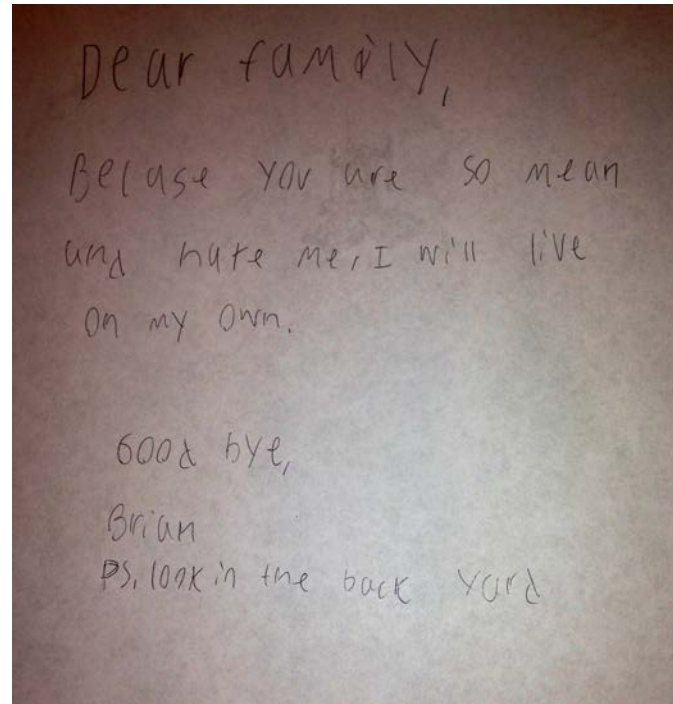 Dear family,
Becuse you are so mean
and hate me, I will live
on my own.
Good bye,
Brian
PS, look in the back yard